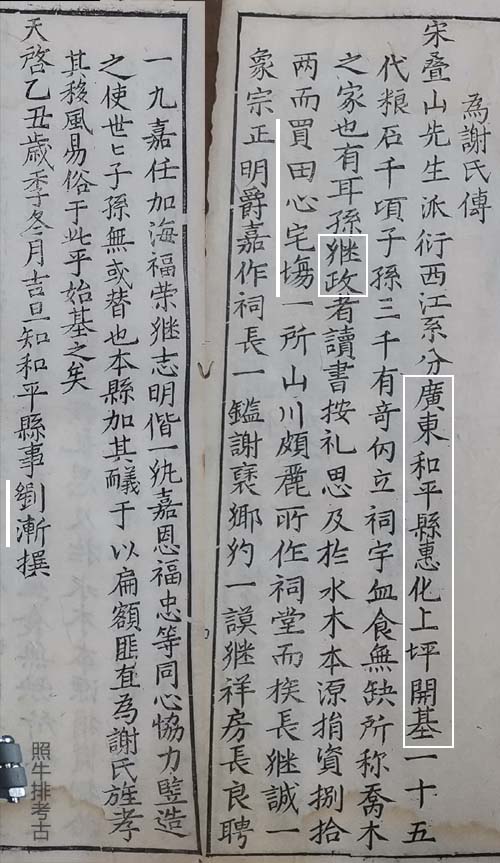 為謝氏傳
宋叠山先生派衍西江系分廣東和平縣惠化上坪開基一十五
代粮石千頃子孫三千有奇仍立祠宇血食無缺所称喬木
之家也有耳孫継政者讀書按礼思及於水木本源捐資捌拾
两而買田心宅塲一所山川頗麗所作祠堂而族長継誠一
象宗正明爵嘉作祠長一鑑謝襃鄉約一謨継祥房長良聘
一九嘉任加海福荣継志明偕一執嘉恩福忠等同心恊力豎造
之使世匕子孫無或替也本縣加其議于以扁額匪直為謝氏旌孝
其移風易俗于此乎始基之矣
天啓乙丑歲季冬月吉旦知和平縣事劉漸撰
照牛排考古